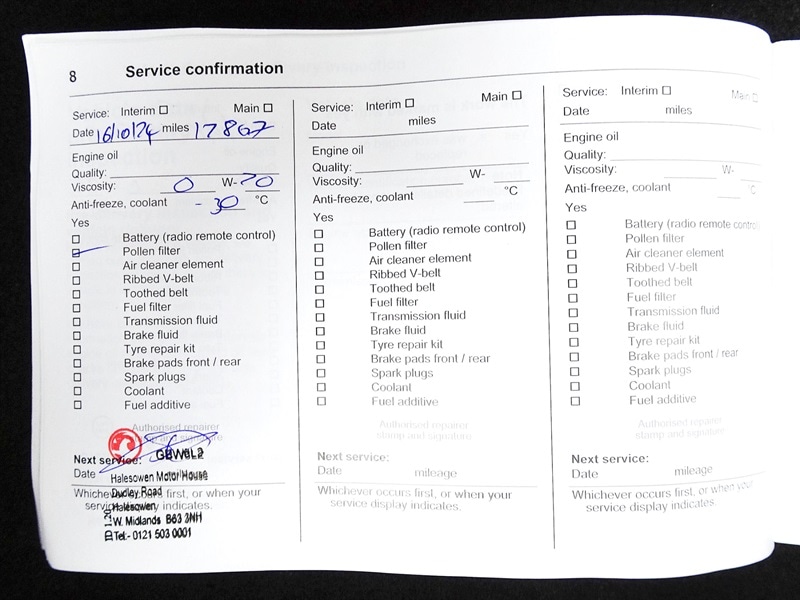 8 Service confirmation
Service: Interim ☐ Main ☐
Date 16/10/24 miles 17867
Engine oil
Quality:
Viscosity: 0 W-20
Anti-freeze, coolant -30 °C
Yes
Battery (radio remote control)
Pollen filter
Air cleaner element
Ribbed V-belt
Toothed belt
Fuel filter
Transmission fluid
Brake fluid
Tyre repair kit
Brake pads front / rear
Spark plugs
Coolant
Fuel additive
Authorised repairer
stamp and signature
Next service: GBW8L2
Date
Halesowen Motor House
Dudley Road
Whichever occurs first, or when your
Halesowen
service display indicates.
W. Midlands B63 3NH
Tel:- 0121 503 0001
Service: Interim ☐ Main ☐
Date miles
Engine oil
Quality:
Viscosity: W-
Anti-freeze, coolant °C
Yes
Battery (radio remote control)
Pollen filter
Air cleaner element
Ribbed V-belt
Toothed belt
Fuel filter
Transmission fluid
Brake fluid
Tyre repair kit
Brake pads front / rear
Spark plugs
Coolant
Fuel additive
Authorised repairer
stamp and signature
Next service:
Date mileage
Whichever occurs first, or when your
service display indicates.
Service: Interim ☐ Main ☐
Date miles
Engine oil
Quality:
Viscosity: W-
Anti-freeze, coolant °C
Yes
Battery (radio remote control)
Pollen filter
Air cleaner element
Ribbed V-belt
Toothed belt
Fuel filter
Transmission fluid
Brake fluid
Tyre repair kit
Brake pads front / rear
Spark plugs
Coolant
Fuel additive
Authorised repairer
stamp and signature
Next service:
Date mileage
Whichever occurs first, or when your
service display indicates.